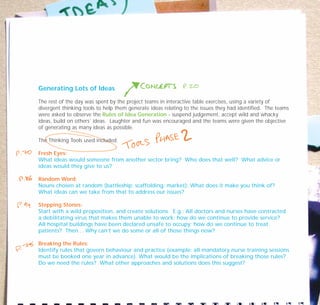 IDEAS
Generating Lots of Ideas
CONCEPTS P.20
The rest of the day was spent by the project teams in interactive table exercises, using a variety of
divergent thinking tools to help them generate ideas relating to the issues they had identified. The teams
were asked to observe the Rules of Idea Generation - suspend judgement; accept wild and whacky
ideas; build on others' ideas. Laughter and fun was encouraged and the teams were given the objective
of generating as many ideas as possible.
The Thinking Tools used included:
TOOLS PHASE 2
Fresh Eyes:
What ideas would someone from another sector bring? Who does that well? What advice or
ideas would they give to us?
Random Word:
Nouns chosen at random (battleship; scaffolding; market). What does it make you think of?
What ideas can we take from that to address our issues?
Stepping Stones:
Start with a wild proposition, and create solutions. E.g.: All doctors and nurses have contracted
a debilitating virus that makes them unable to work; how do we continue to provide service?
All hospital buildings have been declared unsafe to occupy; how do we continue to treat
patients? Then... Why can't we do some or all of those things now?
Breaking the Rules:
Identify rules that govern behaviour and practice (example: all mandatory nurse training sessions
must be booked one year in advance). What would be the implications of breaking those rules?
Do we need the rules? What other approaches and solutions does this suggest?